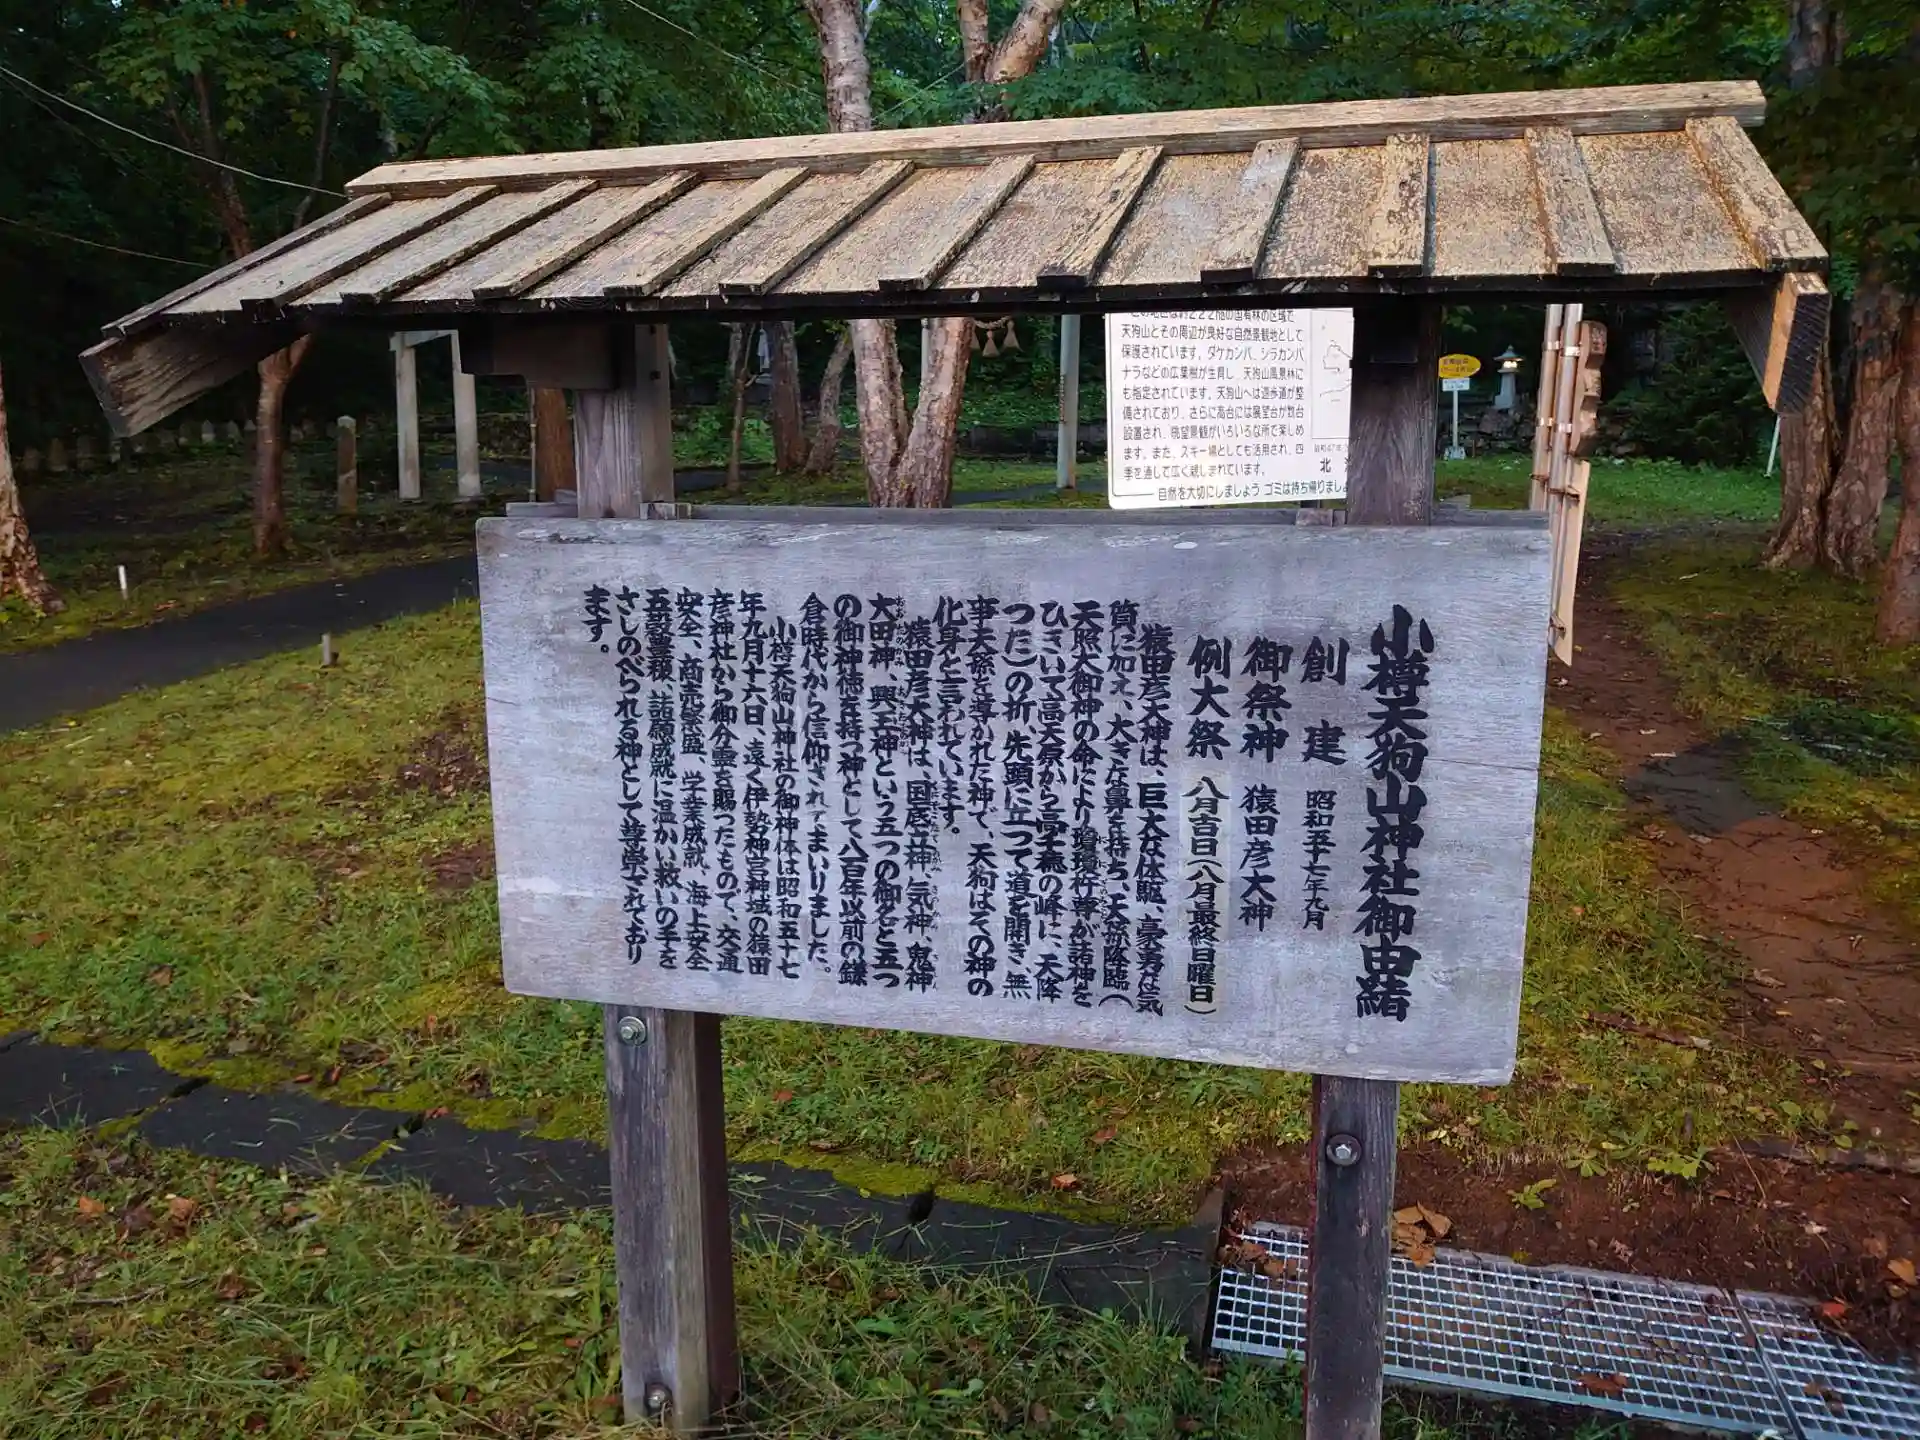 小樽天狗山神社御由緒
創建 昭和五十七年九月
御祭神 猿田彦大神
例大祭 八月吉日(八月最終日曜日)
猿田彦大神は、巨大な体駆、豪勇な気
質に加え、大きな鼻を持ち、天孫降臨(
天照大御神の命により瓊瓊杵尊が諸神を
ひきいて高天原から高千穂の峰に、天降
った)の折、先頭に立って道を開き、無
事天孫を導かれた神で、天狗はその神の
化身と言われています。
猿田彦大神は、国底立神、気神、鬼神
大田神、興玉神という五つの御名と五つ
の御神徳を持つ神として八百年以前の鎌
倉時代から信仰されてまいりました。
小樽天狗山神社の御神体は昭和五十七
年九月十六日、遠く伊勢神宮神域の猿田
彦神社から御分霊を賜ったもので、交通
安全、商売繁盛、学業成就、海上安全
五穀豊穣、諸願成就に温かい救いの手を
さしのべられる神として尊崇されており
ます。
天狗山とその周辺が良好な自然景観地として
保護されています。ダケカンバ、シラカンバ
ナラなどの広葉樹が生育し、天狗山風景林に
も指定されています。天狗山へは遊歩道が整
備されており、さらに高台には展望台が数台
設置され、眺望景観がいろいろな所で楽しめ
ます。また、スキー場としても活用され、四
季を通して広く親しまれています。
自然を大切にしましょう ゴミは持ち帰りましょ
北